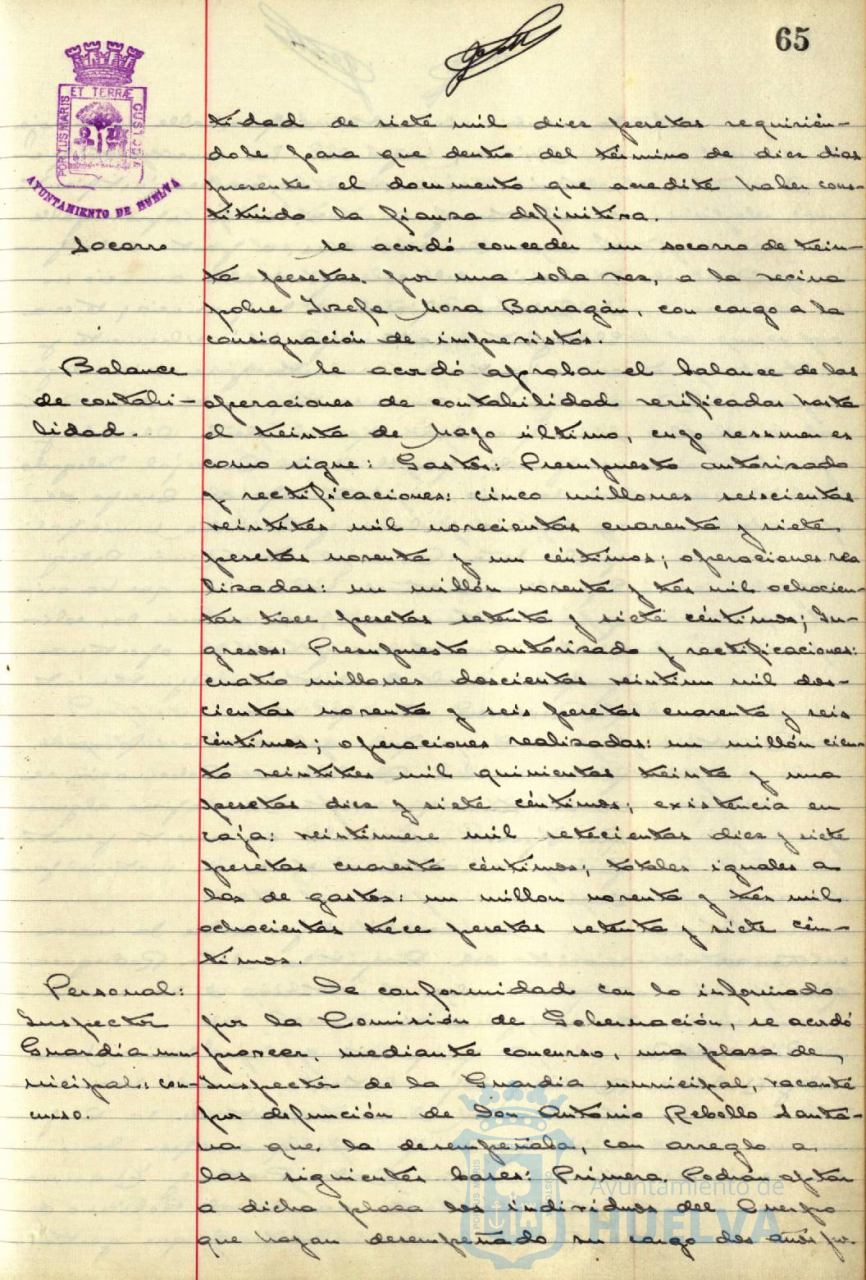 65
PORTUS MARIS ET TERRÆ CUSTODIA
AYUNTAMIENTO DE HUELVA
tidad de siete mil diez pesetas requirién-
dole para que dentro del término de diez dias
presente el documento que acredite haber cons-
tituido la fianza definitiva.
Socorro
Se acordó conceder un socorro de trein-
ta pesetas, por una sola vez, a la vecina
pobre Josefa Mora Barragán, con cargo a la
consignación de imprevistos.
Balance
de contabi-
lidad.
Se acordó aprobar el balance de las
operaciones de contabilidad verificadas hasta
el treinta de Mayo último, cuyo resumen es
como sigue: Gastos: Presupuesto autorizado
y rectificaciones: cinco millones seiscientas
veintitres mil novecientas cuarenta y siete
pesetas noventa y un céntimos; operaciones rea
lizadas: un millón noventa y tres mil ochocien-
tas trece pesetas setenta y siete céntimos; In-
gresos: Presupuesto autorizado y rectificaciones:
cuatro millones doscientas veintiun mil dos-
cientas noventa y seis pesetas cuarenta y seis
céntimos; operaciones realizadas: un millón cien-
to veintitres mil quinientas treinta y una
pesetas diez y siete céntimos; existencia en
caja: veintinueve mil setecientas diez y siete
pesetas cuarenta céntimos; totales iguales a
los de gastos: un millon noventa y tres mil
ochocientas trece pesetas setenta y siete cén-
timos.
Personal:
Inspector
Guardia mu-
nicipal: con-
curso.
De conformidad con lo informado
por la Comisión de Gobernación, se acordó
proveer, mediante concurso, una plaza de
Inspector de la Guardia municipal, vacante
por defunción de Don Antonio Rebollo Santa-
na que la desempeñaba, con arreglo a
las siguientes bases: Primera. Podrán optar
a dicha plaza los individuos del Cuerpo
que hayan desempeñado su cargo dos años por
Ayuntamiento de
HUELVA